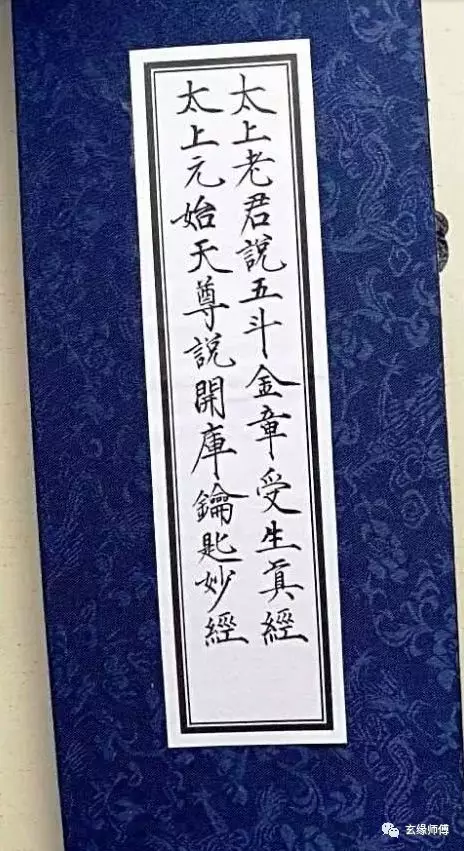 太上老君說五斗金章受生真經
太上元始天尊說開庫鑰匙妙經
玄缘师傅